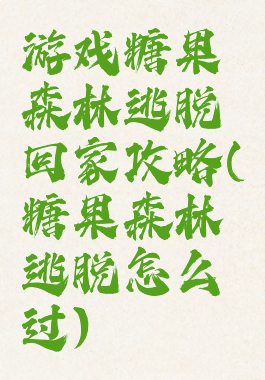 游戏糖果
森林逃脱
回家攻略(
糖果森林
逃脱怎么
过)